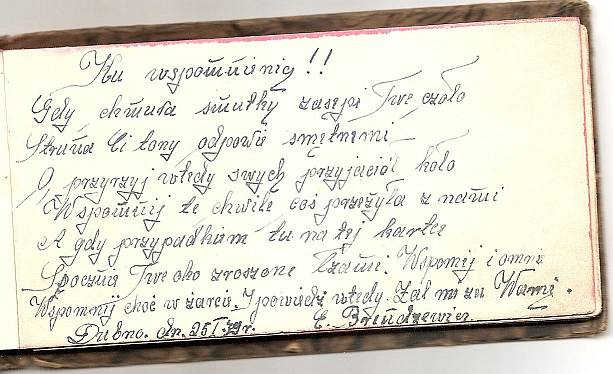 Ku wspomnieniu!!
Gdy chmura smutku zasępi Twe czoło
Struna Ci tony odpowie smętnemi
O, przyrzyj wtedy swych przyjaciół koło
Wspomnij te chwile coś przeżyła z nami
A gdy przypadkiem tu na tej kartce
Spocznie Twe oko zroszone łzami. Wspomnij i o mnie
Wspomnij choć w żarcie. I powiedz wtedy Żal mi za Wami.
Dubno. dn. 25 I. 39 r. E.